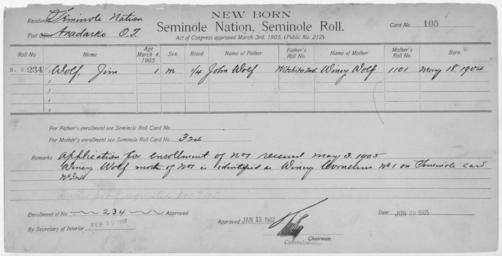 NEW BORN
Residence Seminole Nation
Seminole Nation, Seminole Roll.
Card No. 105
Post Office Anadarko O.T.
Act of Congress approved March 3rd, 1905, (Public No. 212).
Roll No Name Age March 4 1905 Sex. Blood Name of Father. Father's Roll No. Name of Mother Mother's Roll No. Born.
N.B. 234 Wolf, Jim 1 m 1/4 John Wolf Winey Wolf 1101 May 18, 1904
For Father's enrollment see Seminole Roll Card No.
For Mother's enrollment see Seminole Roll Card No.
Remarks Application for enrollment of No 1 received May 2 1905
Winey Wolf mother of No 1 is identified as Winey No 1 on Seminole card
Enrollment of No 234 Approved
By Secretary of Interior
Approved JAN 1907
Chairman
Commission
Date JUN 1905